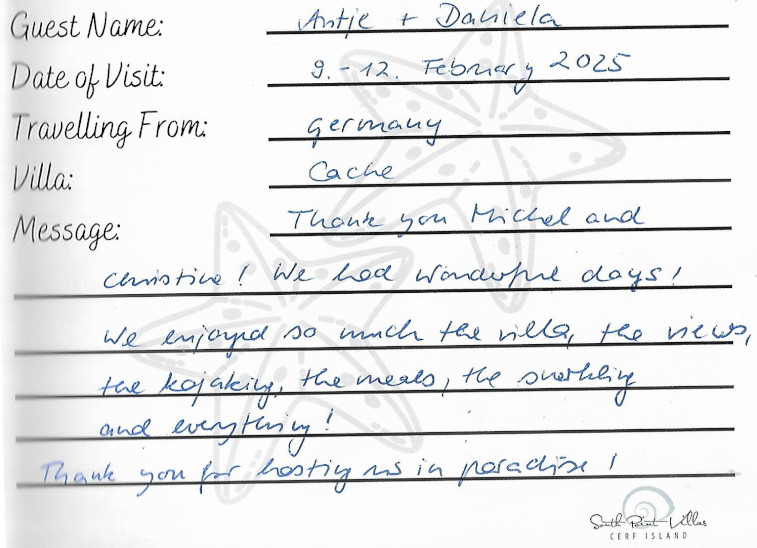 Guest Name: Antje + Daniela
Date of Visit: 9. - 12. February 2025
Travelling From: Germany
Villa: Cache
Message: Thank you Michel and
Christine! We had wonderful days!
We enjoyed so much the villa, the views,
the kajaking, the meals, the snorkling
and everything!
Thank you for hosting us in paradise!
South Point Villas
CERF ISLAND